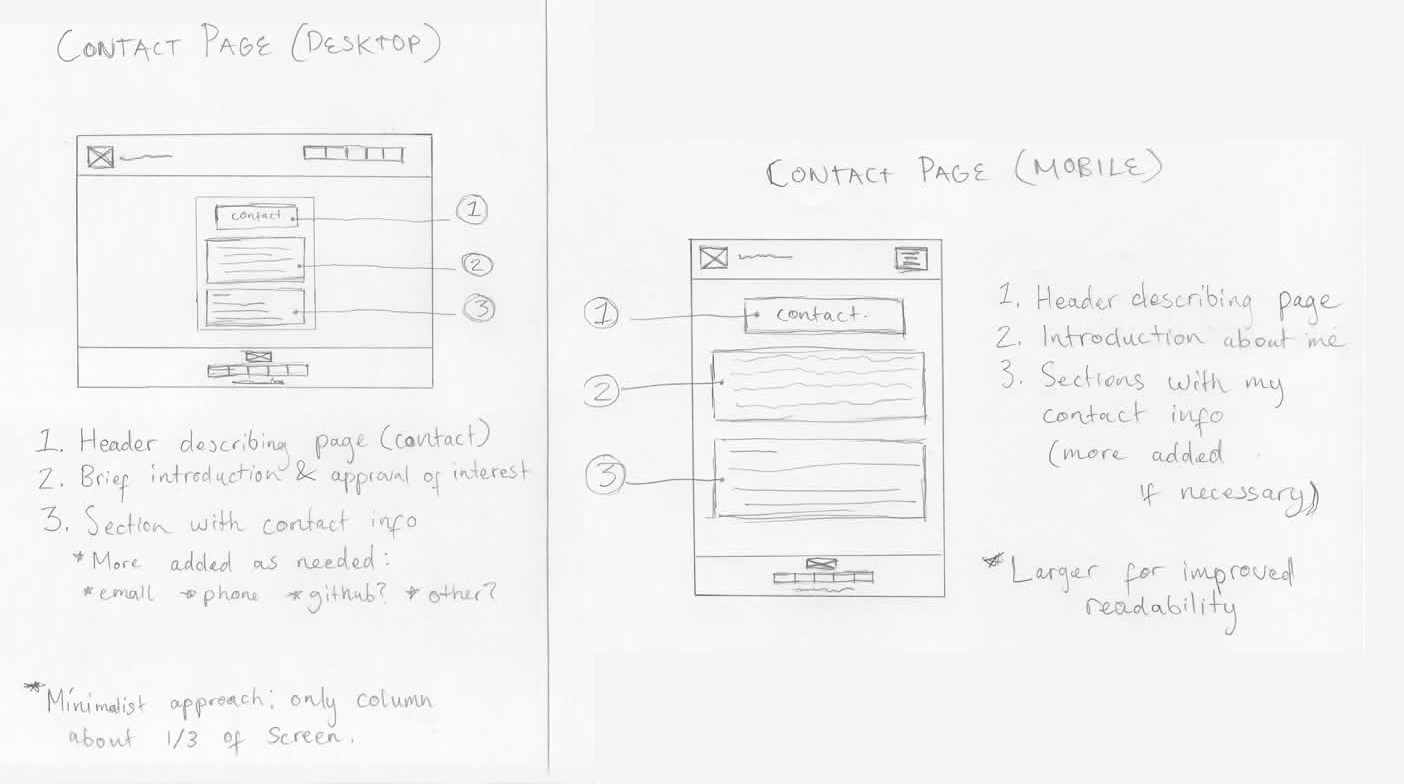 CONTACT PAGE (DESKTOP)
contact
1
2
3
1. Header describing page (contact)
2. Brief introduction & approval of interest
3. Section with contact info
* More added as needed:
* email * phone * github? * other?
* Minimalist approach; only column
about 1/3 of screen.
CONTACT PAGE (MOBILE)
1
contact.
2
3
1. Header describing page
2. Introduction about me
3. Sections with my
contact info
(more added
if necessary)
* Larger for improved
readability